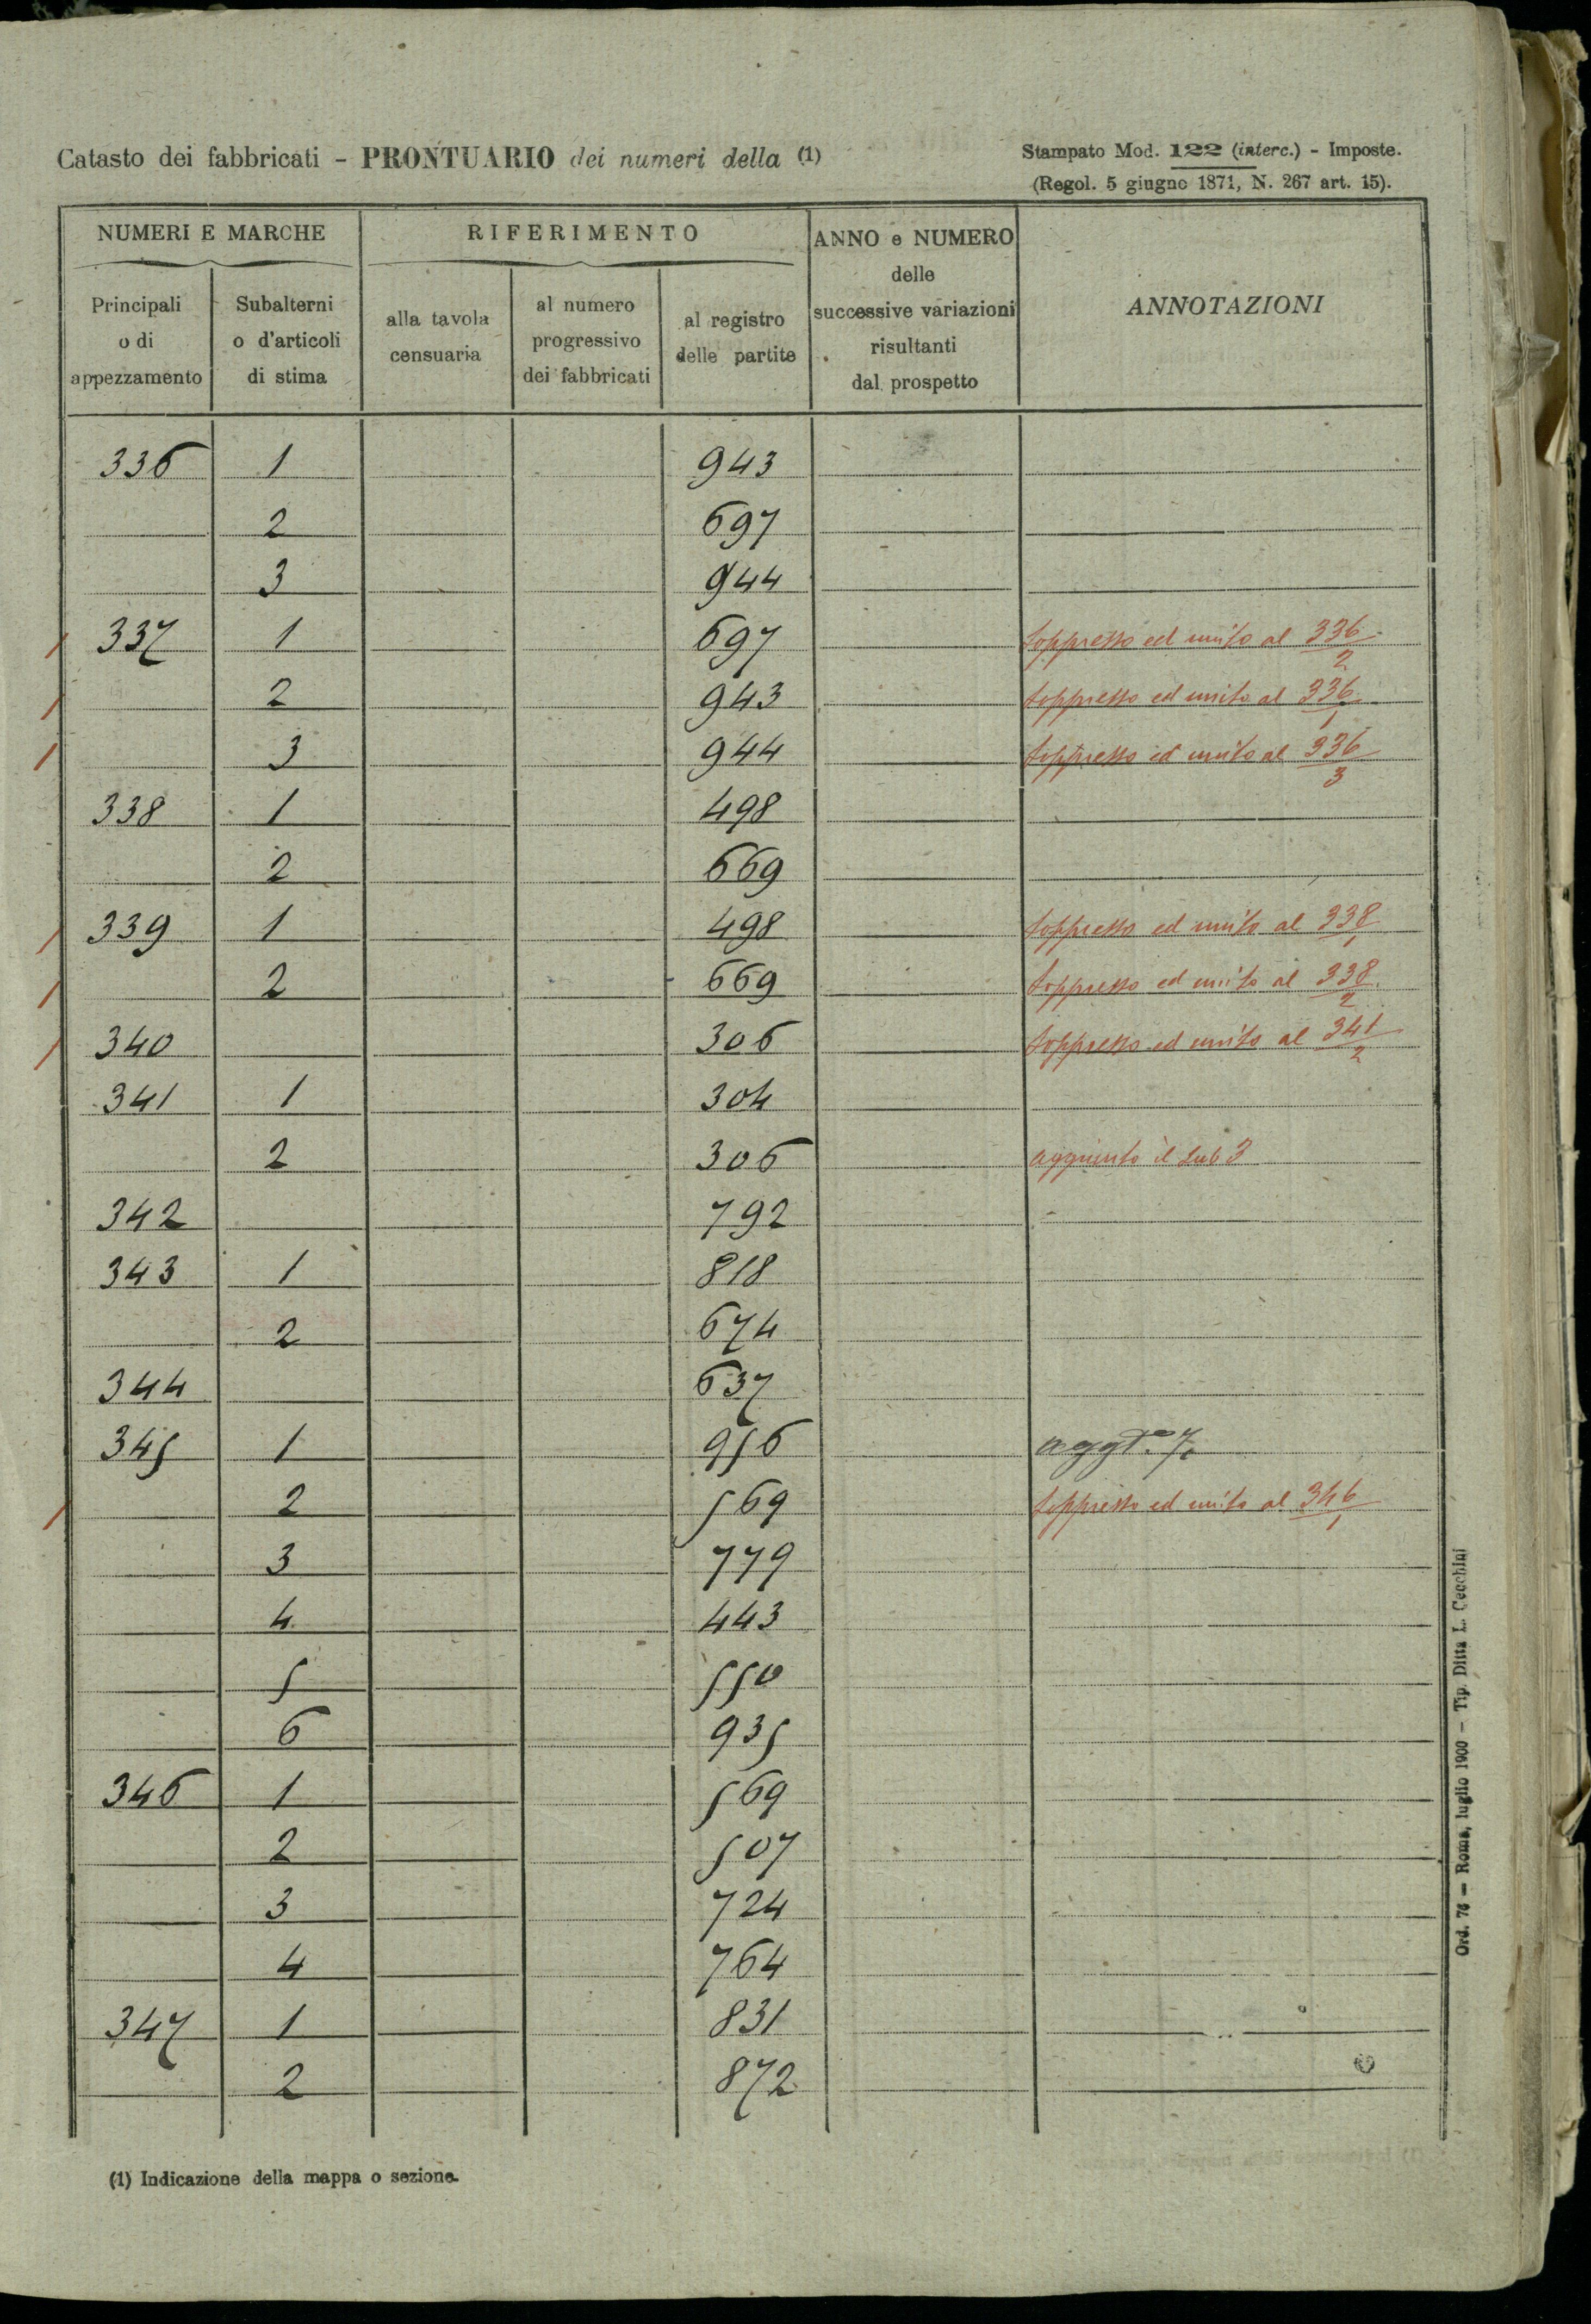 Catasto dei fabbricati - PRONTUARIO dei numeri della (1)
Stampato Mod. 122 (interc.) - Imposte.
(Regol. 5 giugno 1871, N. 267 art. 15).
NUMERI E MARCHE
RIFERIMENTO
ANNO e NUMERO
delle
successive variazioni
risultanti
dal prospetto
ANNOTAZIONI
Principali
o di
appezzamento
Subalterni
o d'articoli
di stima
alla tavola
censuaria
al numero
progressivo
dei fabbricati
al registro
delle partite
336 1 943
2 697
3 944
337 1 697 soppresso ed unito al 336/2
2 943 soppresso ed unito al 336/1
3 944 soppresso ed unito al 336/3
338 1 498
2 669
339 1 498 soppresso ed unito al 338/1
2 669 soppresso ed unito al 338/2
340 306 soppresso ed unito al 341/2
341 1 304
2 306 aggiunto il sub 3
342 792
343 1 818
2 674
344 637
345 1 956 aggto. 7.
2 569 soppresso ed unito al 346/1
3 779
4 443
5 550
6 935
346 1 569
2 507
3 724
4 764
347 1 831
2 872
(1) Indicazione della mappa o sezione.
Ord. 76 - Roma, luglio 1900 - Tip. Ditta L. Cecchini